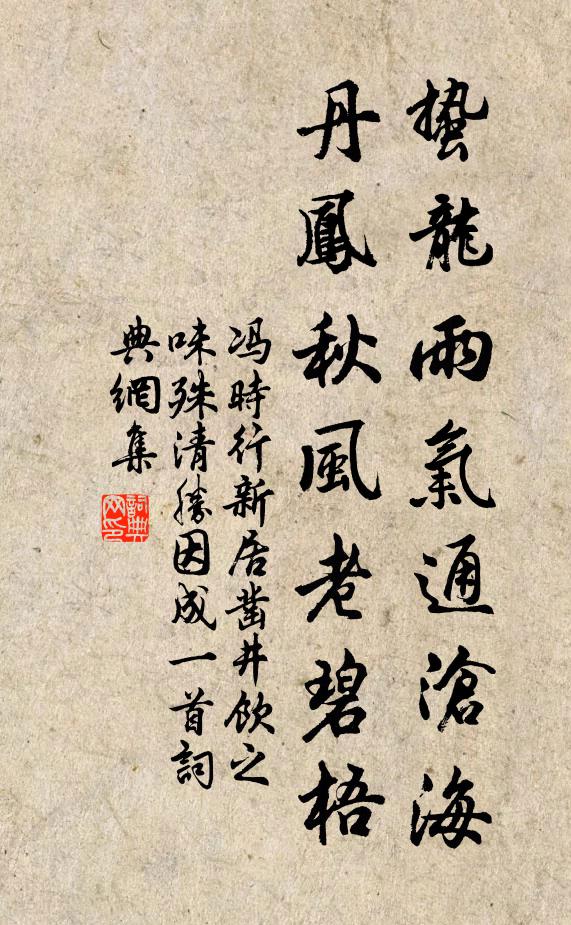 蛰龍雨氣通滄海
丹鳳秋風老碧梧
冯時行新居凿井飲之
味殊清勝因成一首詞
典網集
詞典
网印